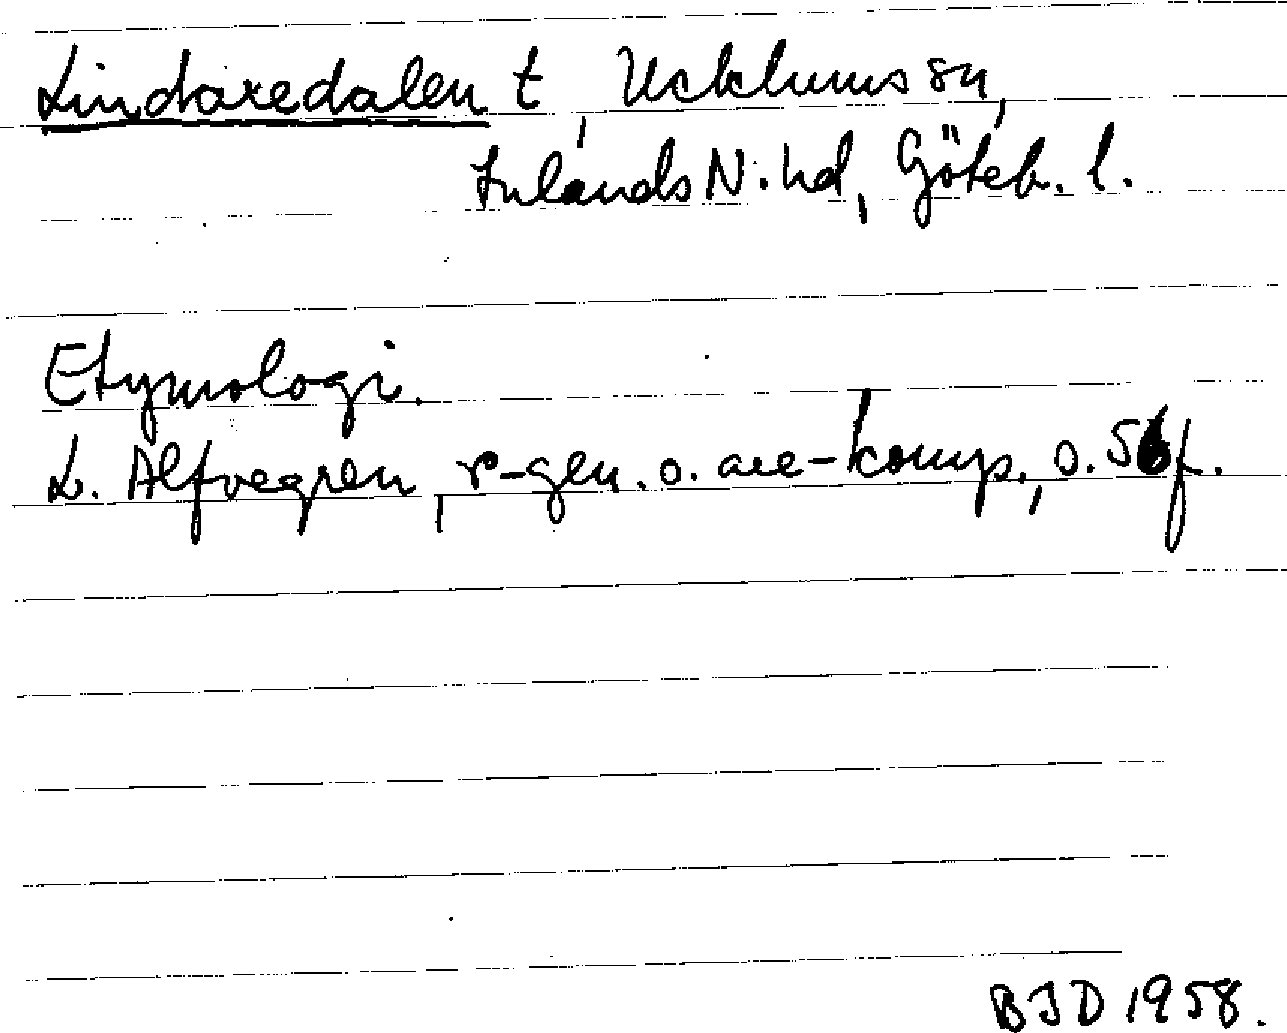 Lindaredalen t, Ucklums sn,
Inlands N. hd, Göteb. l.
Etymologi.
L. Alfvegren, r-gen. o. are-komp., s. 56 f.
BJD 1958.